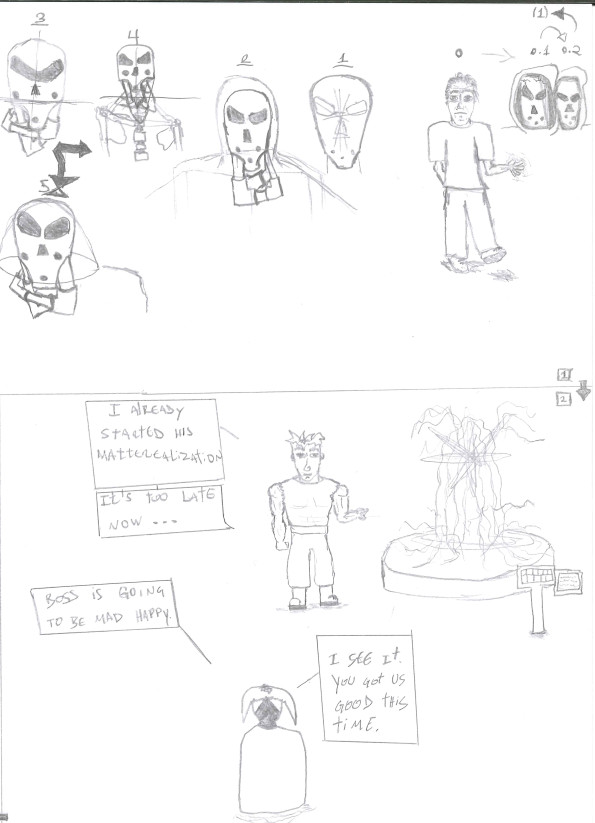 (1)
3
4
2
1
0
0.1 0.2
5
1
2
I ALREADY
STARTED HIS
MATTEREALIZATION
IT'S TOO LATE
NOW ...
BOSS IS GOING
TO BE MAD HAPPY.
I SEE It.
YOU GOt US
GOOD tHIS
tiME.